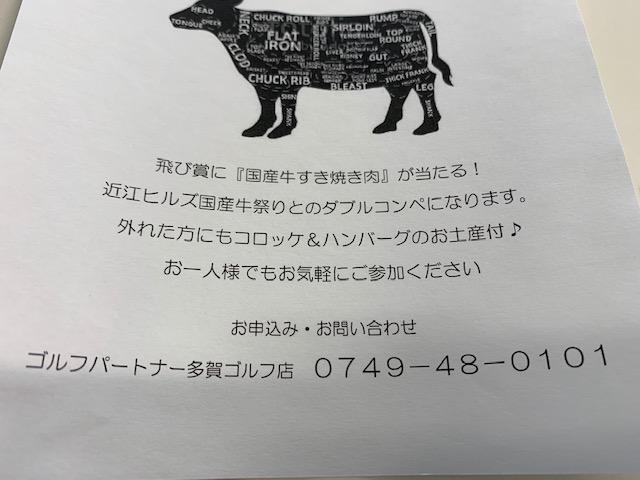 HEAD
TONGUE
CHEEK
NECK
CHUCK ROLL
RUMP
TAIL
SIRLOIN
TENDERLOIN
TOP
ROUND
FLAT
IRON
CLOD
THICK
FLANK
LIVER
KIDNEY
GUT
CHUCK RIB
THICK FLANK
BLEAST
LEG
SHIN
SHANK
SHANK
飛び賞に『国産牛すき焼き肉』が当たる！
近江ヒルズ国産牛祭りとのダブルコンペになります。
外れた方にもコロッケ＆ハンバーグのお土産付♪
お一人様でもお気軽にご参加ください
お申込み・お問い合わせ
ゴルフパートナー多賀ゴルフ店　０７４９－４８－０１０１